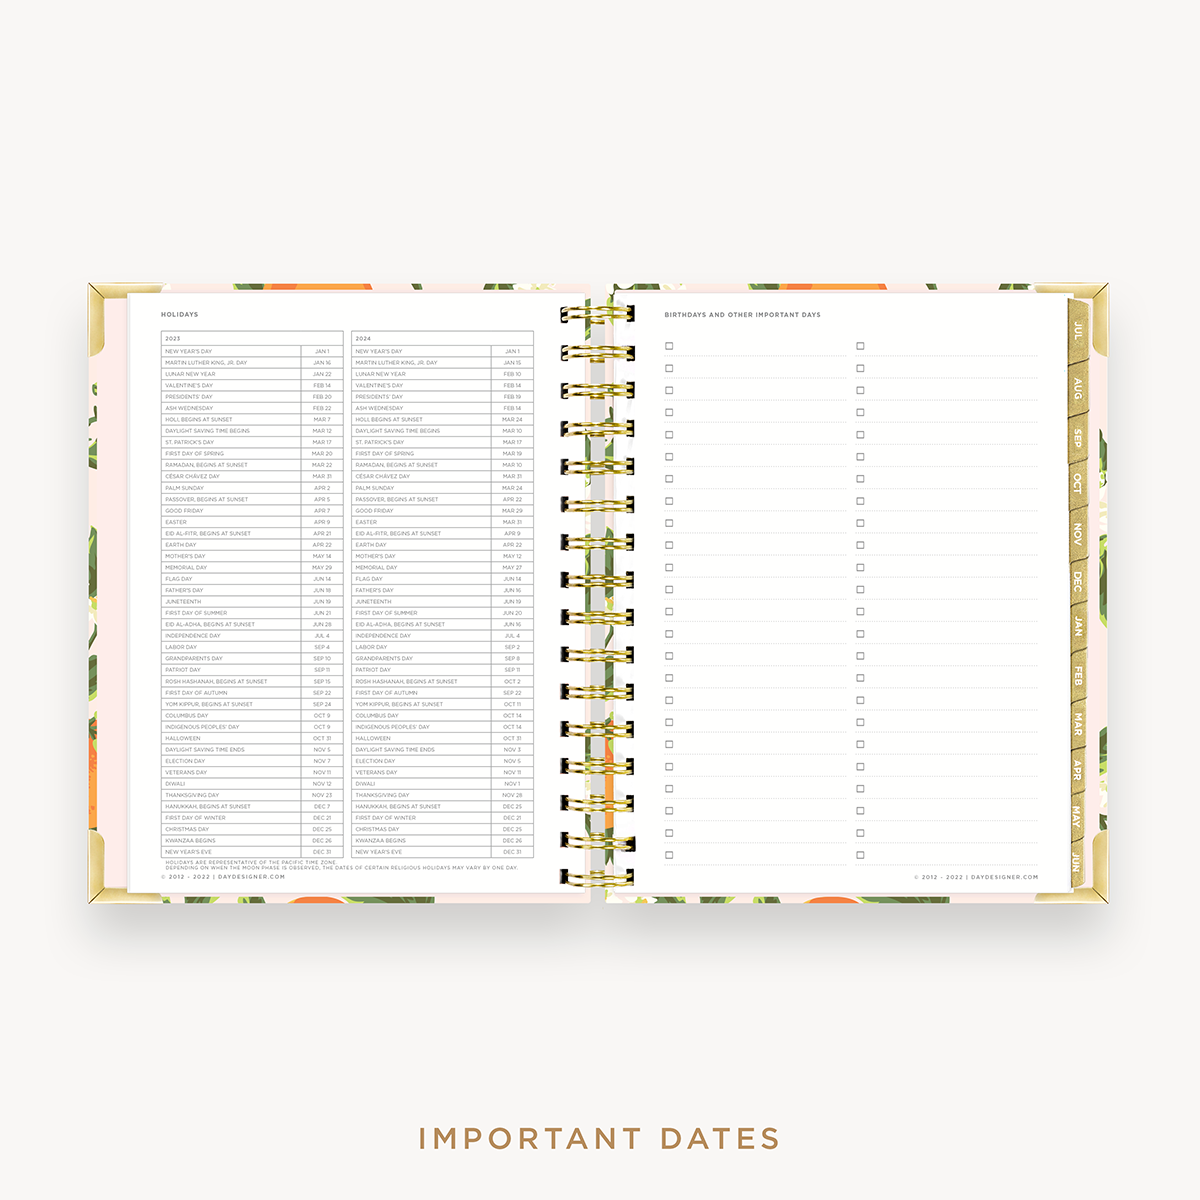 HOLIDAYS
2023
NEW YEAR'S DAY JAN 1
MARTIN LUTHER KING, JR. DAY JAN 16
LUNAR NEW YEAR JAN 22
VALENTINE'S DAY FEB 14
PRESIDENTS' DAY FEB 20
ASH WEDNESDAY FEB 22
HOLI, BEGINS AT SUNSET MAR 7
DAYLIGHT SAVING TIME BEGINS MAR 12
ST. PATRICK'S DAY MAR 17
FIRST DAY OF SPRING MAR 20
RAMADAN, BEGINS AT SUNSET MAR 22
CÉSAR CHÁVEZ DAY MAR 31
PALM SUNDAY APR 2
PASSOVER, BEGINS AT SUNSET APR 5
GOOD FRIDAY APR 7
EASTER APR 9
EID AL-FITR, BEGINS AT SUNSET APR 21
EARTH DAY APR 22
MOTHER'S DAY MAY 14
MEMORIAL DAY MAY 29
FLAG DAY JUN 14
FATHER'S DAY JUN 18
JUNETEENTH JUN 19
FIRST DAY OF SUMMER JUN 21
EID AL-ADHA, BEGINS AT SUNSET JUN 28
INDEPENDENCE DAY JUL 4
LABOR DAY SEP 4
GRANDPARENTS DAY SEP 10
PATRIOT DAY SEP 11
ROSH HASHANAH, BEGINS AT SUNSET SEP 15
FIRST DAY OF AUTUMN SEP 22
YOM KIPPUR, BEGINS AT SUNSET SEP 24
COLUMBUS DAY OCT 9
INDIGENOUS PEOPLES' DAY OCT 9
HALLOWEEN OCT 31
DAYLIGHT SAVING TIME ENDS NOV 5
ELECTION DAY NOV 7
VETERANS DAY NOV 11
DIWALI NOV 12
THANKSGIVING DAY NOV 23
HANUKKAH, BEGINS AT SUNSET DEC 7
FIRST DAY OF WINTER DEC 21
CHRISTMAS DAY DEC 25
KWANZAA BEGINS DEC 26
NEW YEAR'S EVE DEC 31
2024
NEW YEAR'S DAY JAN 1
MARTIN LUTHER KING, JR. DAY JAN 15
LUNAR NEW YEAR FEB 10
VALENTINE'S DAY FEB 14
PRESIDENTS' DAY FEB 19
ASH WEDNESDAY FEB 14
HOLI, BEGINS AT SUNSET MAR 24
DAYLIGHT SAVING TIME BEGINS MAR 10
ST. PATRICK'S DAY MAR 17
FIRST DAY OF SPRING MAR 19
RAMADAN, BEGINS AT SUNSET MAR 10
CÉSAR CHÁVEZ DAY MAR 31
PALM SUNDAY MAR 24
PASSOVER, BEGINS AT SUNSET APR 22
GOOD FRIDAY MAR 29
EASTER MAR 31
EID AL-FITR, BEGINS AT SUNSET APR 9
EARTH DAY APR 22
MOTHER'S DAY MAY 12
MEMORIAL DAY MAY 27
FLAG DAY JUN 14
FATHER'S DAY JUN 16
JUNETEENTH JUN 19
FIRST DAY OF SUMMER JUN 20
EID AL-ADHA, BEGINS AT SUNSET JUN 16
INDEPENDENCE DAY JUL 4
LABOR DAY SEP 2
GRANDPARENTS DAY SEP 8
PATRIOT DAY SEP 11
ROSH HASHANAH, BEGINS AT SUNSET OCT 2
FIRST DAY OF AUTUMN SEP 22
YOM KIPPUR, BEGINS AT SUNSET OCT 11
COLUMBUS DAY OCT 14
INDIGENOUS PEOPLES' DAY OCT 14
HALLOWEEN OCT 31
DAYLIGHT SAVING TIME ENDS NOV 3
ELECTION DAY NOV 5
VETERANS DAY NOV 11
DIWALI NOV 1
THANKSGIVING DAY NOV 28
HANUKKAH, BEGINS AT SUNSET DEC 25
FIRST DAY OF WINTER DEC 21
CHRISTMAS DAY DEC 25
KWANZAA BEGINS DEC 26
NEW YEAR'S EVE DEC 31
HOLIDAYS ARE REPRESENTATIVE OF THE PACIFIC TIME ZONE.
DEPENDING ON WHEN THE MOON PHASE IS OBSERVED, THE DATES OF CERTAIN RELIGIOUS HOLIDAYS MAY VARY BY ONE DAY.
© 2012 - 2022 | DAYDESIGNER.COM
BIRTHDAYS AND OTHER IMPORTANT DAYS
© 2012 - 2022 | DAYDESIGNER.COM
JUL
AUG
SEP
OCT
NOV
DEC
JAN
FEB
MAR
APR
MAY
JUN
IMPORTANT DATES